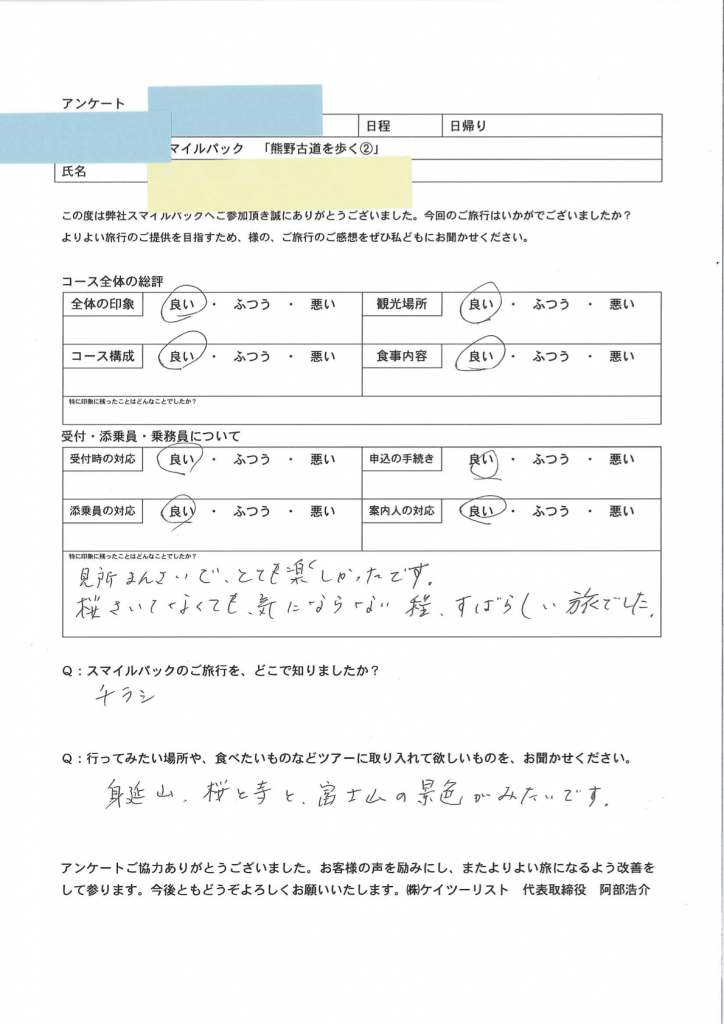 アンケート
日程 日帰り
マイルパック 「熊野古道を歩く②」
氏名
この度は弊社スマイルパックへご参加頂き誠にありがとうございました。今回のご旅行はいかがでございましたか？
よりよい旅行のご提供を目指すため、様の、ご旅行のご感想をぜひ私どもにお聞かせください。
コース全体の総評
全体の印象 良い ・ ふつう ・ 悪い 観光場所 良い ・ ふつう ・ 悪い
コース構成 良い ・ ふつう ・ 悪い 食事内容 良い ・ ふつう ・ 悪い
特に印象に残ったことはどんなことでしたか？
受付・添乗員・乗務員について
受付時の対応 良い ・ ふつう ・ 悪い 申込の手続き 良い ・ ふつう ・ 悪い
添乗員の対応 良い ・ ふつう ・ 悪い 案内人の対応 良い ・ ふつう ・ 悪い
特に印象に残ったことはどんなことでしたか？
見所まんさいで、とても楽しかったです。
桜さいてなくても、気にならない程、すばらしい旅でした。
Q：スマイルパックのご旅行を、どこで知りましたか？
チラシ
Q：行ってみたい場所や、食べたいものなどツアーに取り入れて欲しいものを、お聞かせください。
身延山、桜と寺と、富士山の景色がみたいです。
アンケートご協力ありがとうございました。お客様の声を励みにし、またよりよい旅になるよう改善を
して参ります。今後ともどうぞよろしくお願いいたします。㈱ケイツーリスト 代表取締役 阿部浩介